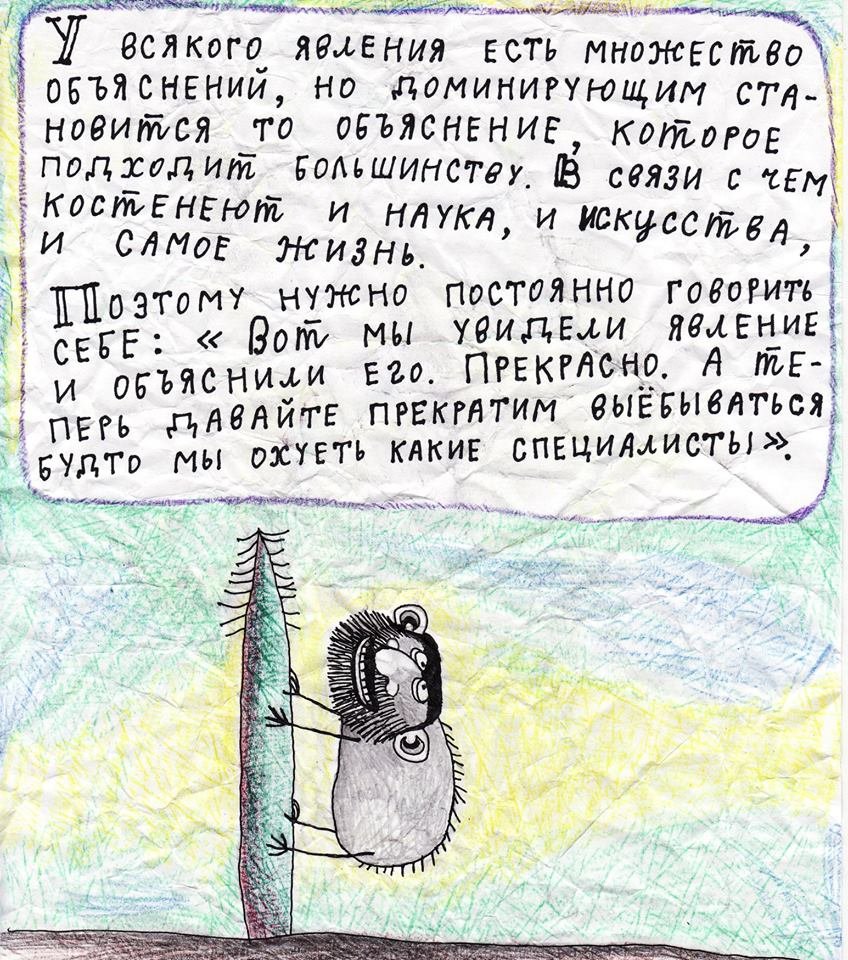 У ВСЯКОГО ЯВЛЕНИЯ ЕСТЬ МНОЖЕСТВО
ОБЪЯСНЕНИЙ, НО ДОМИНИРУЮЩИМ СТА-
НОВИТСЯ ТО ОБЪЯСНЕНИЕ, КОТОРОЕ
ПОДХОДИТ БОЛЬШИНСТВУ. В СВЯЗИ С ЧЕМ
КОСТЕНЕЮТ И НАУКА, И ИСКУССТВА,
И САМОЕ ЖИЗНЬ.
ПОЭТОМУ НУЖНО ПОСТОЯННО ГОВОРИТЬ
СЕБЕ: « ВОТ МЫ УВИДЕЛИ ЯВЛЕНИЕ
И ОБЪЯСНИЛИ ЕГО. ПРЕКРАСНО. А ТЕ-
ПЕРЬ ДАВАЙТЕ ПРЕКРАТИМ ВЫЁБЫВАТЬСЯ
БУДТО МЫ ОХУЕТЬ КАКИЕ СПЕЦИАЛИСТЫ».